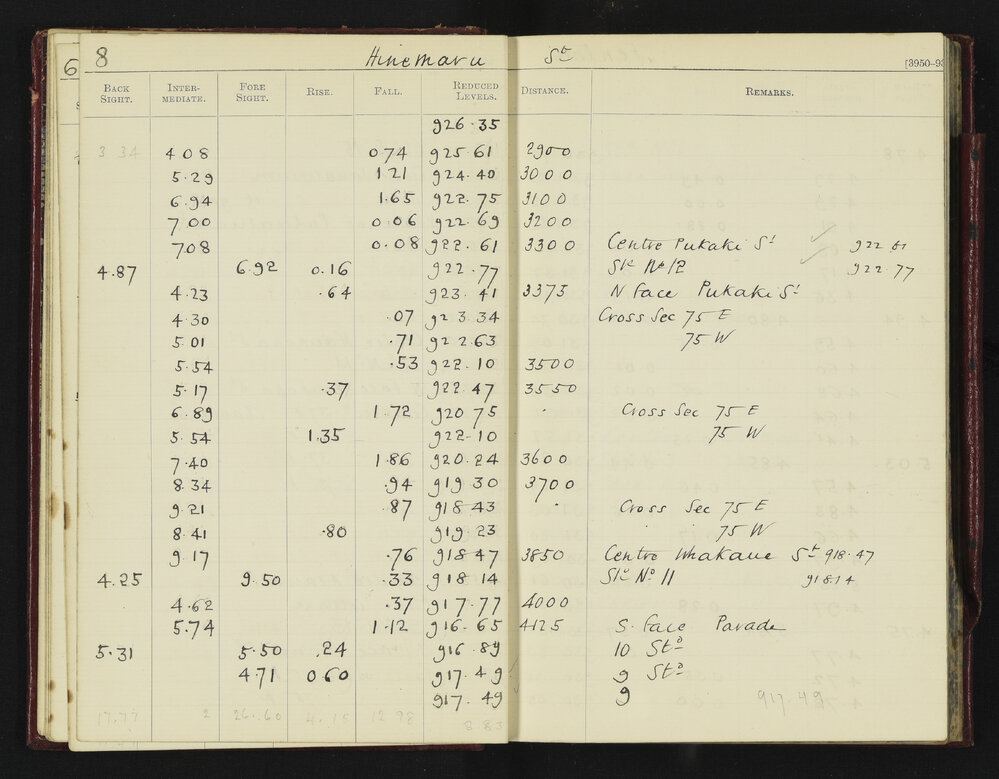 6 8 Hinemaru St [3950-93
BACK SIGHT. INTER-MEDIATE. FORE SIGHT. RISE. FALL. REDUCED LEVELS. DISTANCE. REMARKS.
926.35
3 34 4 08 0.74 925 61 2900
5.29 1 21 924.40 3000
6.94 1.65 922.75 3100
7 00 0.06 922 69 3200
7 08 0.08 922.61 3300 Centre Pukaki St 922 61
4.87 6.92 0.16 922.77 Stk No 12 922.77
4.23 .64 923.41 3373 N Face Pukaki St
4.30 .07 923 34 Cross Sec 75 E
5 01 .71 922 63 75 W
5.54 .53 922.10 3500
5.17 .37 922.47 3550
6.89 1.72 920 75 . Cross Sec 75 E
5.54 1.35 922.10 75 W
7.40 1.86 920.24 3600
8.34 .94 919 30 3700
9 21 .87 918 43 . Cross Sec 75 E
8.41 .80 919 23 75 W
9.17 .76 918 47 3850 Centre Whakaue St 918.47
4.25 9.50 .33 918 14 Stk No 11 918 14
4.62 .37 917.77 4000
5.74 1.12 916.65 4125 S. Face Parade
5.31 5.50 .24 916.89 10 Std
4.71 0.60 917.49 9 Std
917.49 9 917.49
17.77 2 26.60 4.15 12 98 8.83